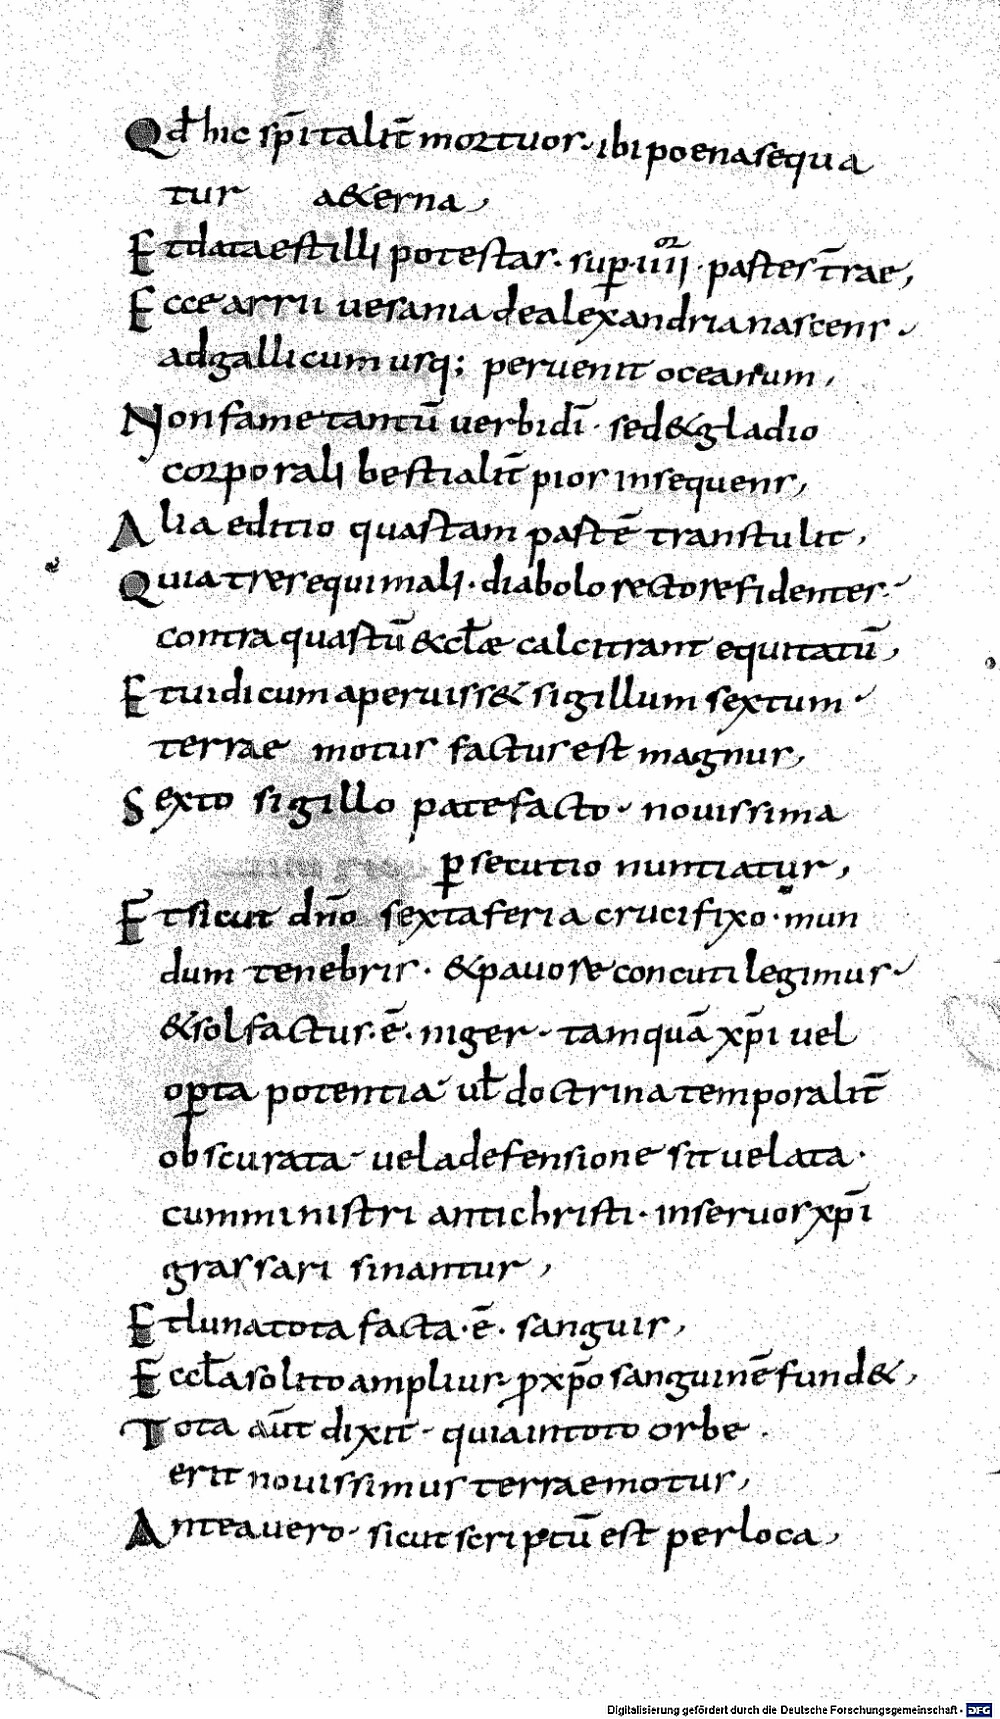 Qd̄ hic sp̄italit̄ mortuos· ibi poena sequa
tur a&erna,
Et data est illi potestas· sup̱ iiii^or· partes t̄rae,
Ecce arrii uesania de alexandria nascens·
ad gallicum usq; peruenit oceanum,
Non fame tantū uerbi dī· sed & gladio
corporali bestialit̄ pios insequens,
Alia editio quartam partē transtulit,
Quia tres equi mali· diabolo rectore fidenter·
contra quartū & eccl̄ae calcitrant equitatū,
Et uidi cum aperuiss& sigillum sextum·
terrae motus factus est magnus,
Sexto sigillo patefacto· nouissima
p̱secutio nuntiatur,
Et sicut dn̄o sexta feria crucifixo· mun
dum tenebris· & pauore concuti legimus·
& sol factus· ē· niger· tamquā xp̄i uel
op̱ta potentia· ul̄ doctrina temporalit̄
obscurata· uel a defensione sit uelata·
cum ministri antichristi· in seruos xp̄i
grassari sinantur,
Et luna tota facta· ē· sanguis,
Eccl̄a solito amplius· p̱ xp̄o sanguinē fund&,
Tota aūt dixit· quia in toto orbe·
erit nouissimus terrae motus,
Antea uero· sicut scriptū est per loca,
Digitalisierung gefördert durch die Deutsche Forschungsgemeinschaft - DFG